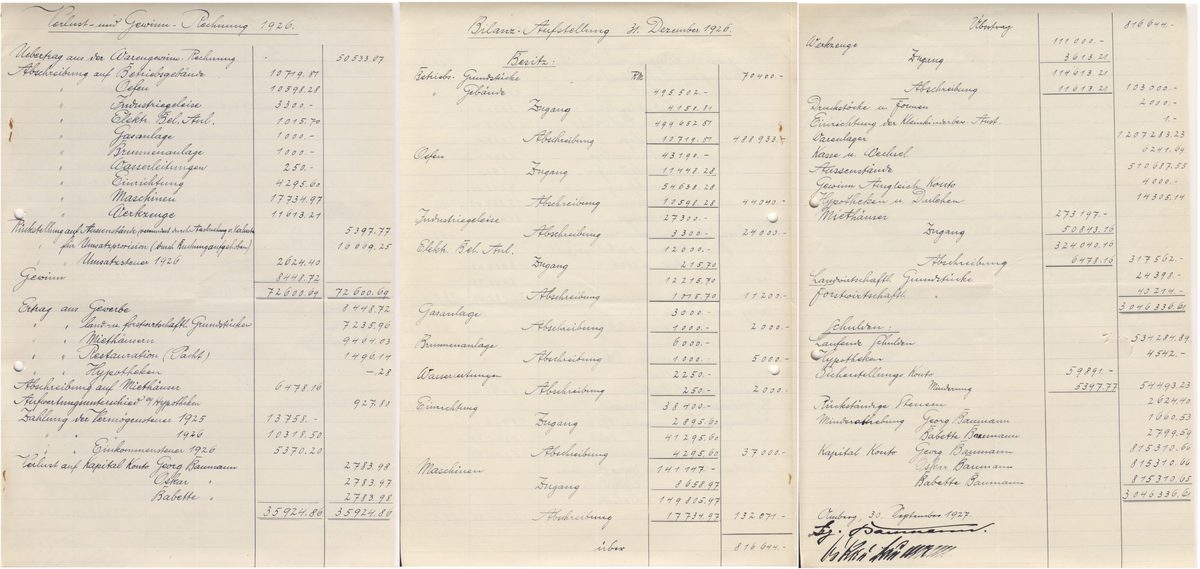 Verlust- und Gewinn-Rechnung 1926.
Uebertrag aus der Warengewinn-Rechnung 50533.07
Abschreibung auf Betriebsgebäude 10719.81
" Oefen 10598.28
" Industriegeleise 3300.-
" Elektr. Bel. Anl. 1015.70
" Gasanlage 1000.-
" Brunnenanlage 1000.-
" Wasserleitungen 250.-
" Einrichtung 4295.60
" Maschinen 17734.97
" Werkzeuge 11613.21
Rückstellung auf Aussenstände, 5397.77
" für Umsatzprovision (durch Buchung aufgehoben) 16009.25
" " Umsatzsteuer 1926 2624.40
Gewinn 8448.72
72600.69 72600.69
Ertrag aus Gewerbe 8448.72
" " land- u. forstwirtschaftl. Grundstücken 7235.96
" " Miethäusern 9464.03
" " Restauration (Pacht) 1496.14
" " Hypotheken -.28
Abschreibung auf Miethäuser 6478.16
Aufwertungsunterschied a/ Hypotheken 927.80
Zahlung der Vermögensteuer 1925 13758.-
" " " 1926 10318.50
" " Einkommensteuer 1926 5370.20
Verlust auf Kapital Konto Georg Baumann 2783.98
Oskar " 2783.97
Babette " 2783.98
35924.86 35924.86
Bilanz-Aufstellung 31. Dezember 1926.
Besitz:
Betriebs-Grundstücke RM 70400.-
" Gebäude 495502.-
Zugang 4150.81
499652.81
Abschreibung 10719.81 488933.-
Oefen 43190.-
Zugang 11448.28
54638.28
Abschreibung 10598.28 44040.-
Industriegeleise 27300.-
Abschreibung 3300.- 24000.-
Elektr. Bel. Anl. 12000.-
Zugang 215.70
12215.70
Abschreibung 1015.70 11200.-
Gasanlage 3000.-
Abschreibung 1000.- 2000.-
Brunnenanlage 6000.-
Abschreibung 1000.- 5000.-
Wasserleitungen 2250.-
Abschreibung 250.- 2000.-
Einrichtung 38400.-
Zugang 2895.60
41295.60
Abschreibung 4295.60 37000.-
Maschinen 141147.-
Zugang 8658.97
149805.97
Abschreibung 17734.97 132071.-
über 816644.-
Übertrag 816644.-
Werkzeuge 111000.-
Zugang 3613.21
114613.21
Abschreibung 11613.21 103000.-
Druckstöcke u. Formen 2000.-
Einrichtung der Kleinkinderbew. Anst. 1.-
Warenlager 1207283.23
Kasse u. Wechsel 6241.69
Aussenstände 510687.55
Gewinn Ausgleich Konto 4000.-
Hypotheken u. Darlehen 14305.14
Miethäuser 273197.-
Zugang 50843.16
324040.16
Abschreibung 6478.16 317562.-
Landwirtschaftl. Grundstücke 24398.-
Forstwirtschaftl. " 40214.-
3046336.61
Schulden:
Laufende Schulden 534284.89
Hypotheken 4542.-
Sicherstellungs Konto 59891.-
Minderung 5397.77 54493.23
Rückständige Steuern 2624.40
Mündelschreibung Georg Baumann 1660.53
Babette Baumann 2799.59
Kapital Konto Georg Baumann 815310.66
Oskar Baumann 815310.66
Babette Baumann 815310.65
3046336.61
Amberg, 30. September 1927.
Gg. Baumann.
Oskar Baumann